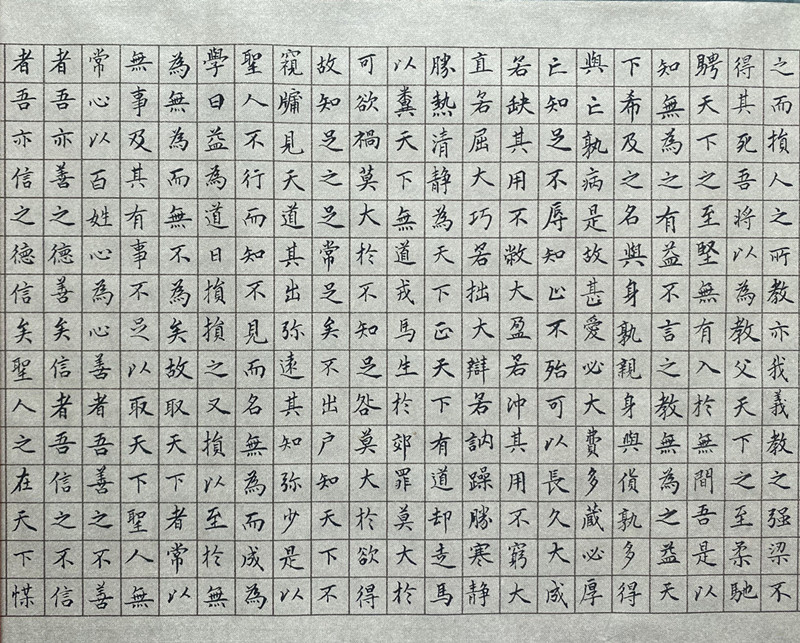 之而損人之所教亦我義教之强梁不
得其死吾將以為教父天下之至柔馳
騁天下之至堅無有入於無間吾是以
知無為之有益不言之教無為之益天
下希及之名與身孰親身與貨孰多得
與亡孰病是故甚愛必大費多藏必厚
亡知足不辱知止不殆可以長久大成
若缺其用不敝大盈若冲其用不窮大
直若屈大巧若拙大辯若訥躁勝寒静
勝熱清静為天下正天下有道却走馬
以糞天下無道戎馬生於郊罪莫大於
可欲禍莫大於不知足咎莫大於欲得
故知足之足常足矣不出户知天下不
窺牖見天道其出弥遠其知弥少是以
聖人不行而知不見而名無為而成為
學日益為道日損損之又損以至於無
為無為而無不為矣故取天下者常以
無事及其有事不足以取天下聖人無
常心以百姓心為心善者吾善之不善
者吾亦善之德善矣信者吾信之不信
者吾亦信之德信矣聖人之在天下惵